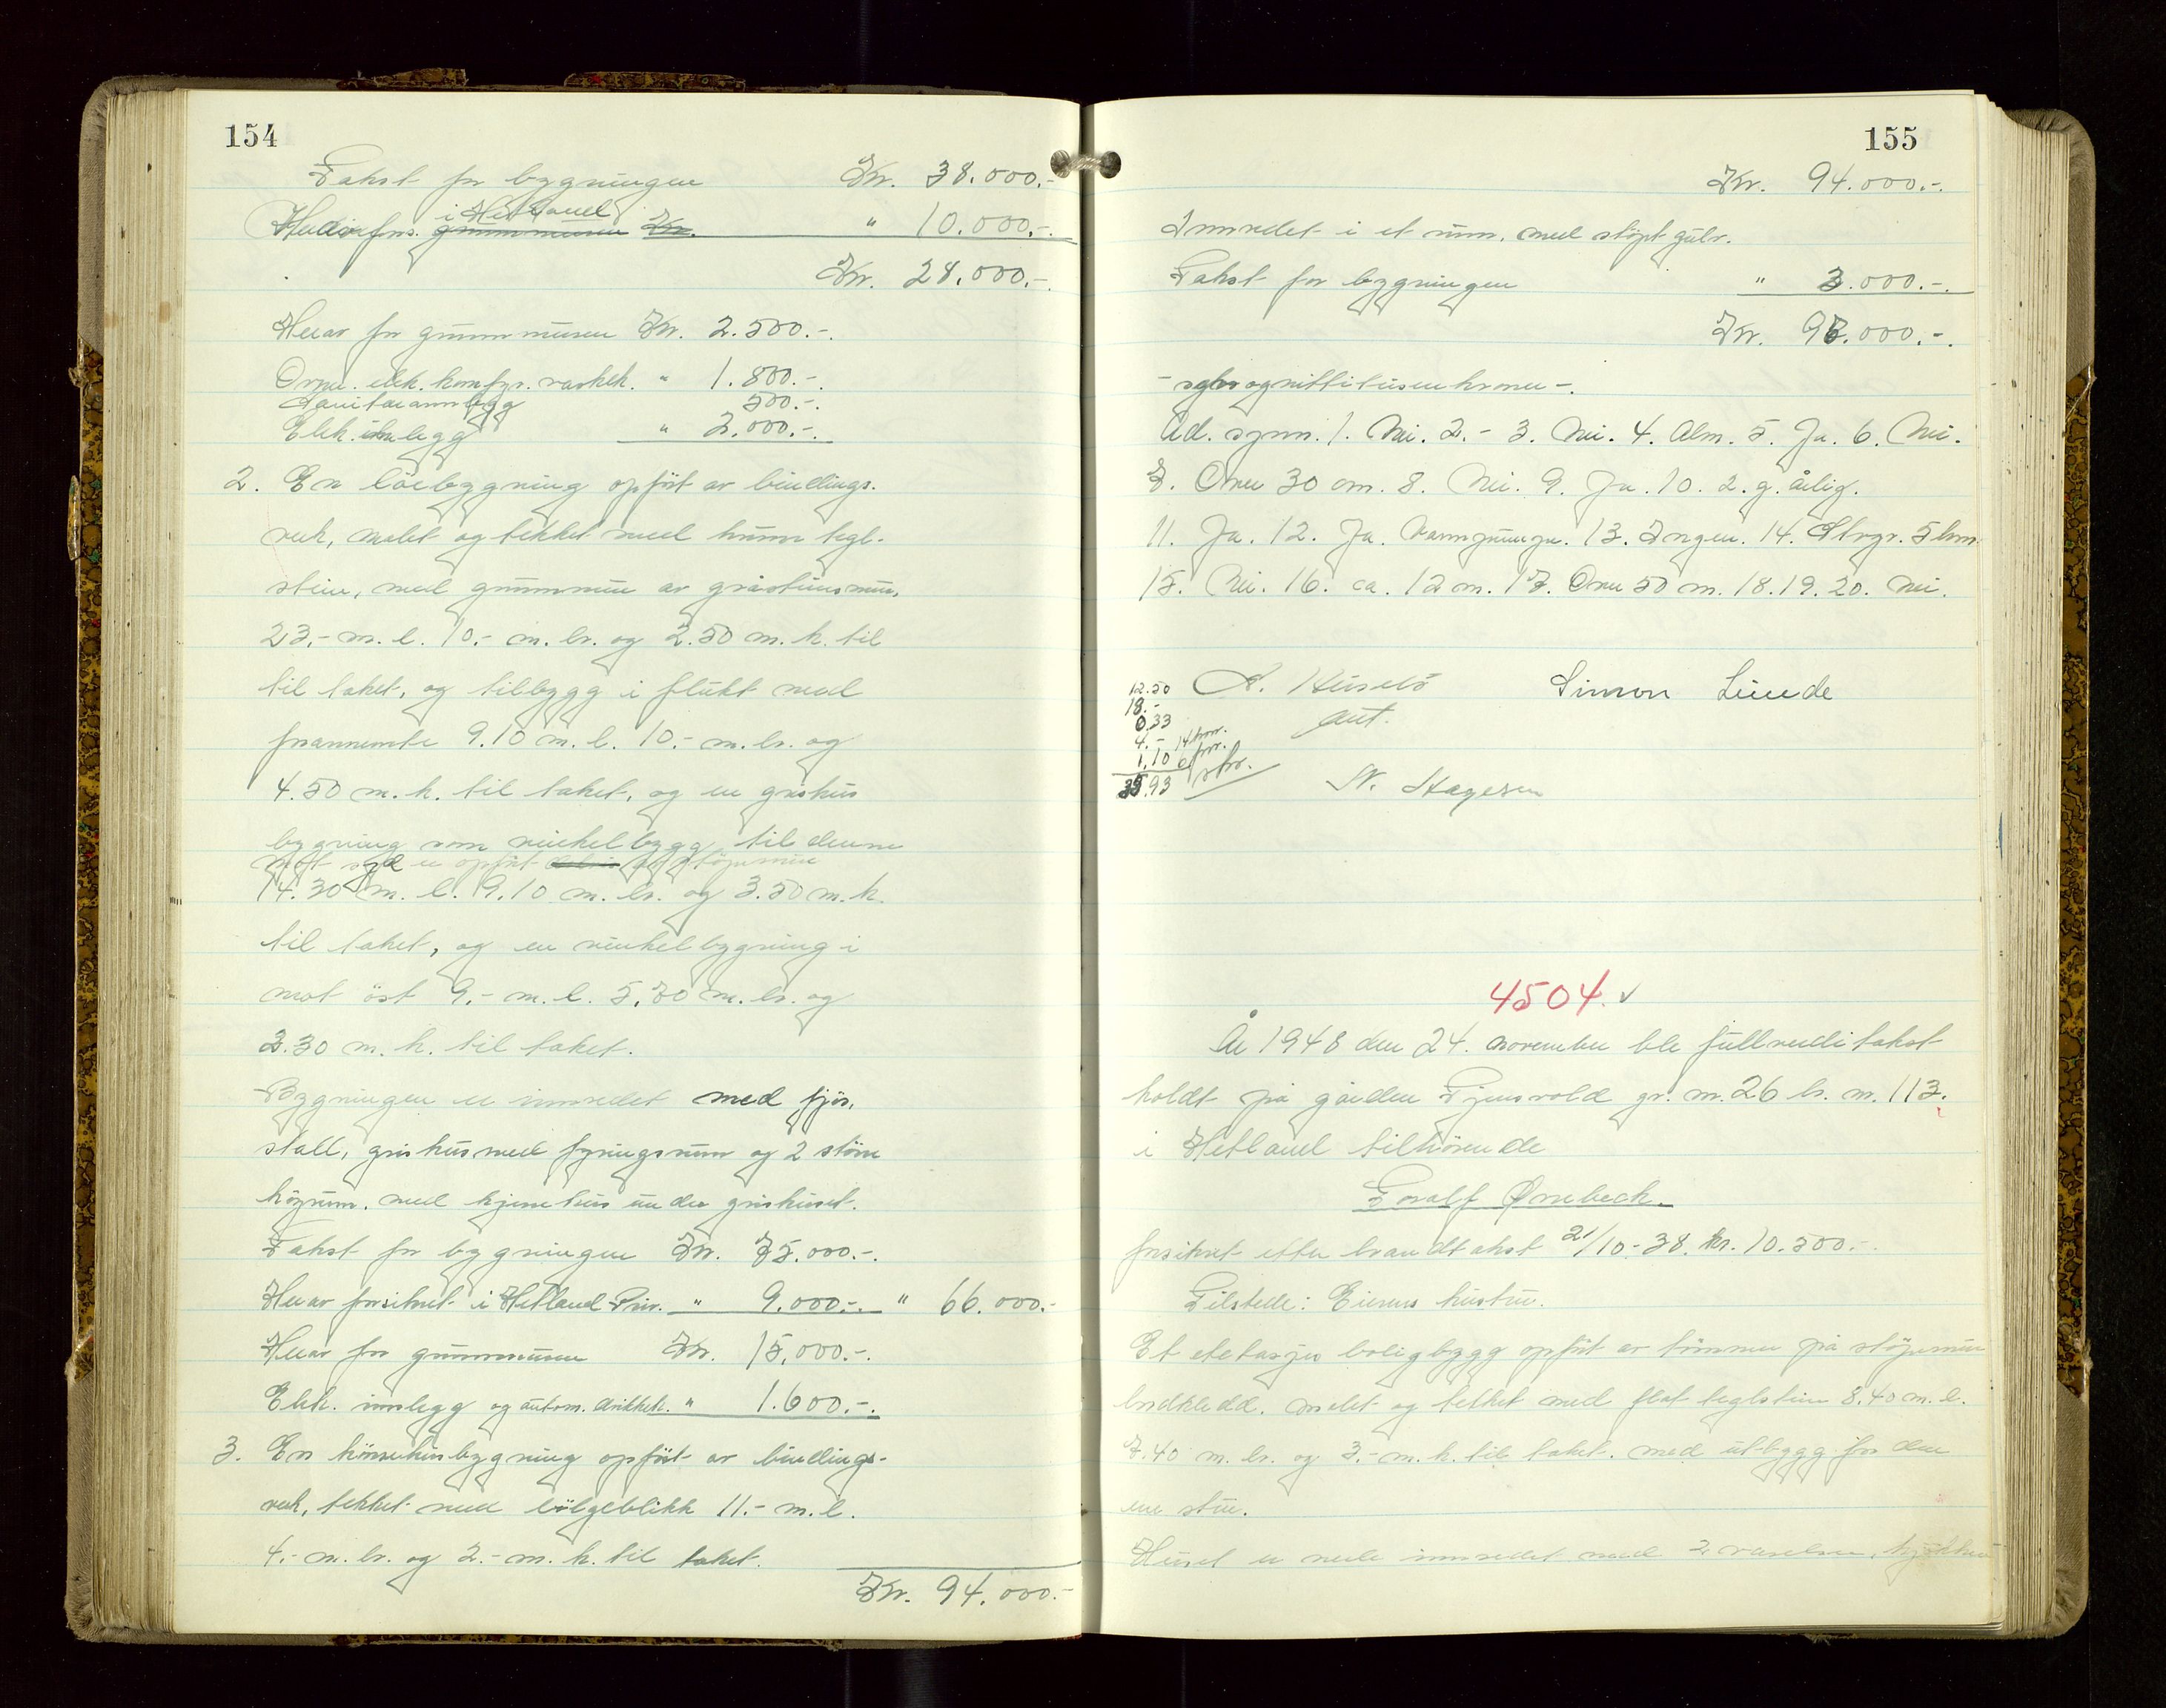 154
Takst for bygningen Kr. 38.000.-
Herav fors. i Hetland " 10.000.-
Kr. 28.000.-
Herav for grunnmuren Kr. 2.500.-
Ovner. elek. komfyr. vaskek. " 1.800.-
Sanitæranlegg 500.-
Elek. innlegg " 2.000.-
2. En löebygning opfört av bindings-
verk, malet og tekket med krum tegl-
stein, med grunnmur av gråsteinsmur,
23.- m. l. 10.- m. br. og 2.50 m. h. til
til taket, og tilbygg i flukt med
forannevnte 9.10 m. l. 10.- m. br. og
4.50 m. h. til taket, og en grishus
bygning som vinkelbygg til denne
mot syd er opfört av støpemur
14.30 m. l. 9.10 m. br. og 3.50 m. h.
til taket, og en vinkelbygning i
mot öst 9.- m. l. 5.70 m. br. og
2.30 m. h. til taket.
Bygningen er innredet med fjös,
stall, grishus med fyringsrum og 2 störe
höyrum. med kjerrehus under grishuset.
Takst for bygningen Kr. 75.000.-
Herav forsikret i Hetland Priv. " 9.000.- " 66.000.-
Herav for grunnmuren Kr. 15.000.-
Elek. innlegg og autom. drikkek. " 1.600.-
3. En hönsehusbygning opfört av bindings-
verk, tekket med bölgeblikk 11.- m. l.
4.- m. br. og 2.- m. h. til taket.
Kr. 94.000.-
155
Kr. 94.000.-
Innredet i et rum, med stöpt gulv.
Takst for bygningen " 3.000.-
Kr. 97.000.-
- syv og nitti tusen kroner -.
Ad. sønn. 1. Nei. 2. - 3. Nei. 4. Alm. 5. Ja. 6. Nei.
7. Over 30 cm. 8. Nei. 9. Ja. 10. 2. g. årlig.
11. Ja. 12. Ja. Vannpumpe. 13. Ingen. 14. Stvgr. 5 km.
15. Nei. 16. ca. 12 m. 17. Over 50 m. 18. 19. 20. Nei.
12.50
18.-
0.33
4.-
1.10
35.93
Simon Lunde
4504.
År 1948 den 24. november ble fullverditakst
holdt på gården Tjensvold gr. nr. 26 br. nr. 113.
i Hetland tilhörende
Toralf Ørrebeck.
forsikret etter branntakst 21/10-38. kr. 10.500.-
Tilstede: Eierens hustru.
Et etetasjes boligbygg opfört av tömmer på stöpemur
bordkledd. malet og tekket med flat teglstein 8.40 m. l.
7.40 m. br. og 3.- m. h. til taket. med utbygg for den
ene stue.
Huset er nede innredet med 2 værelser, kjökken